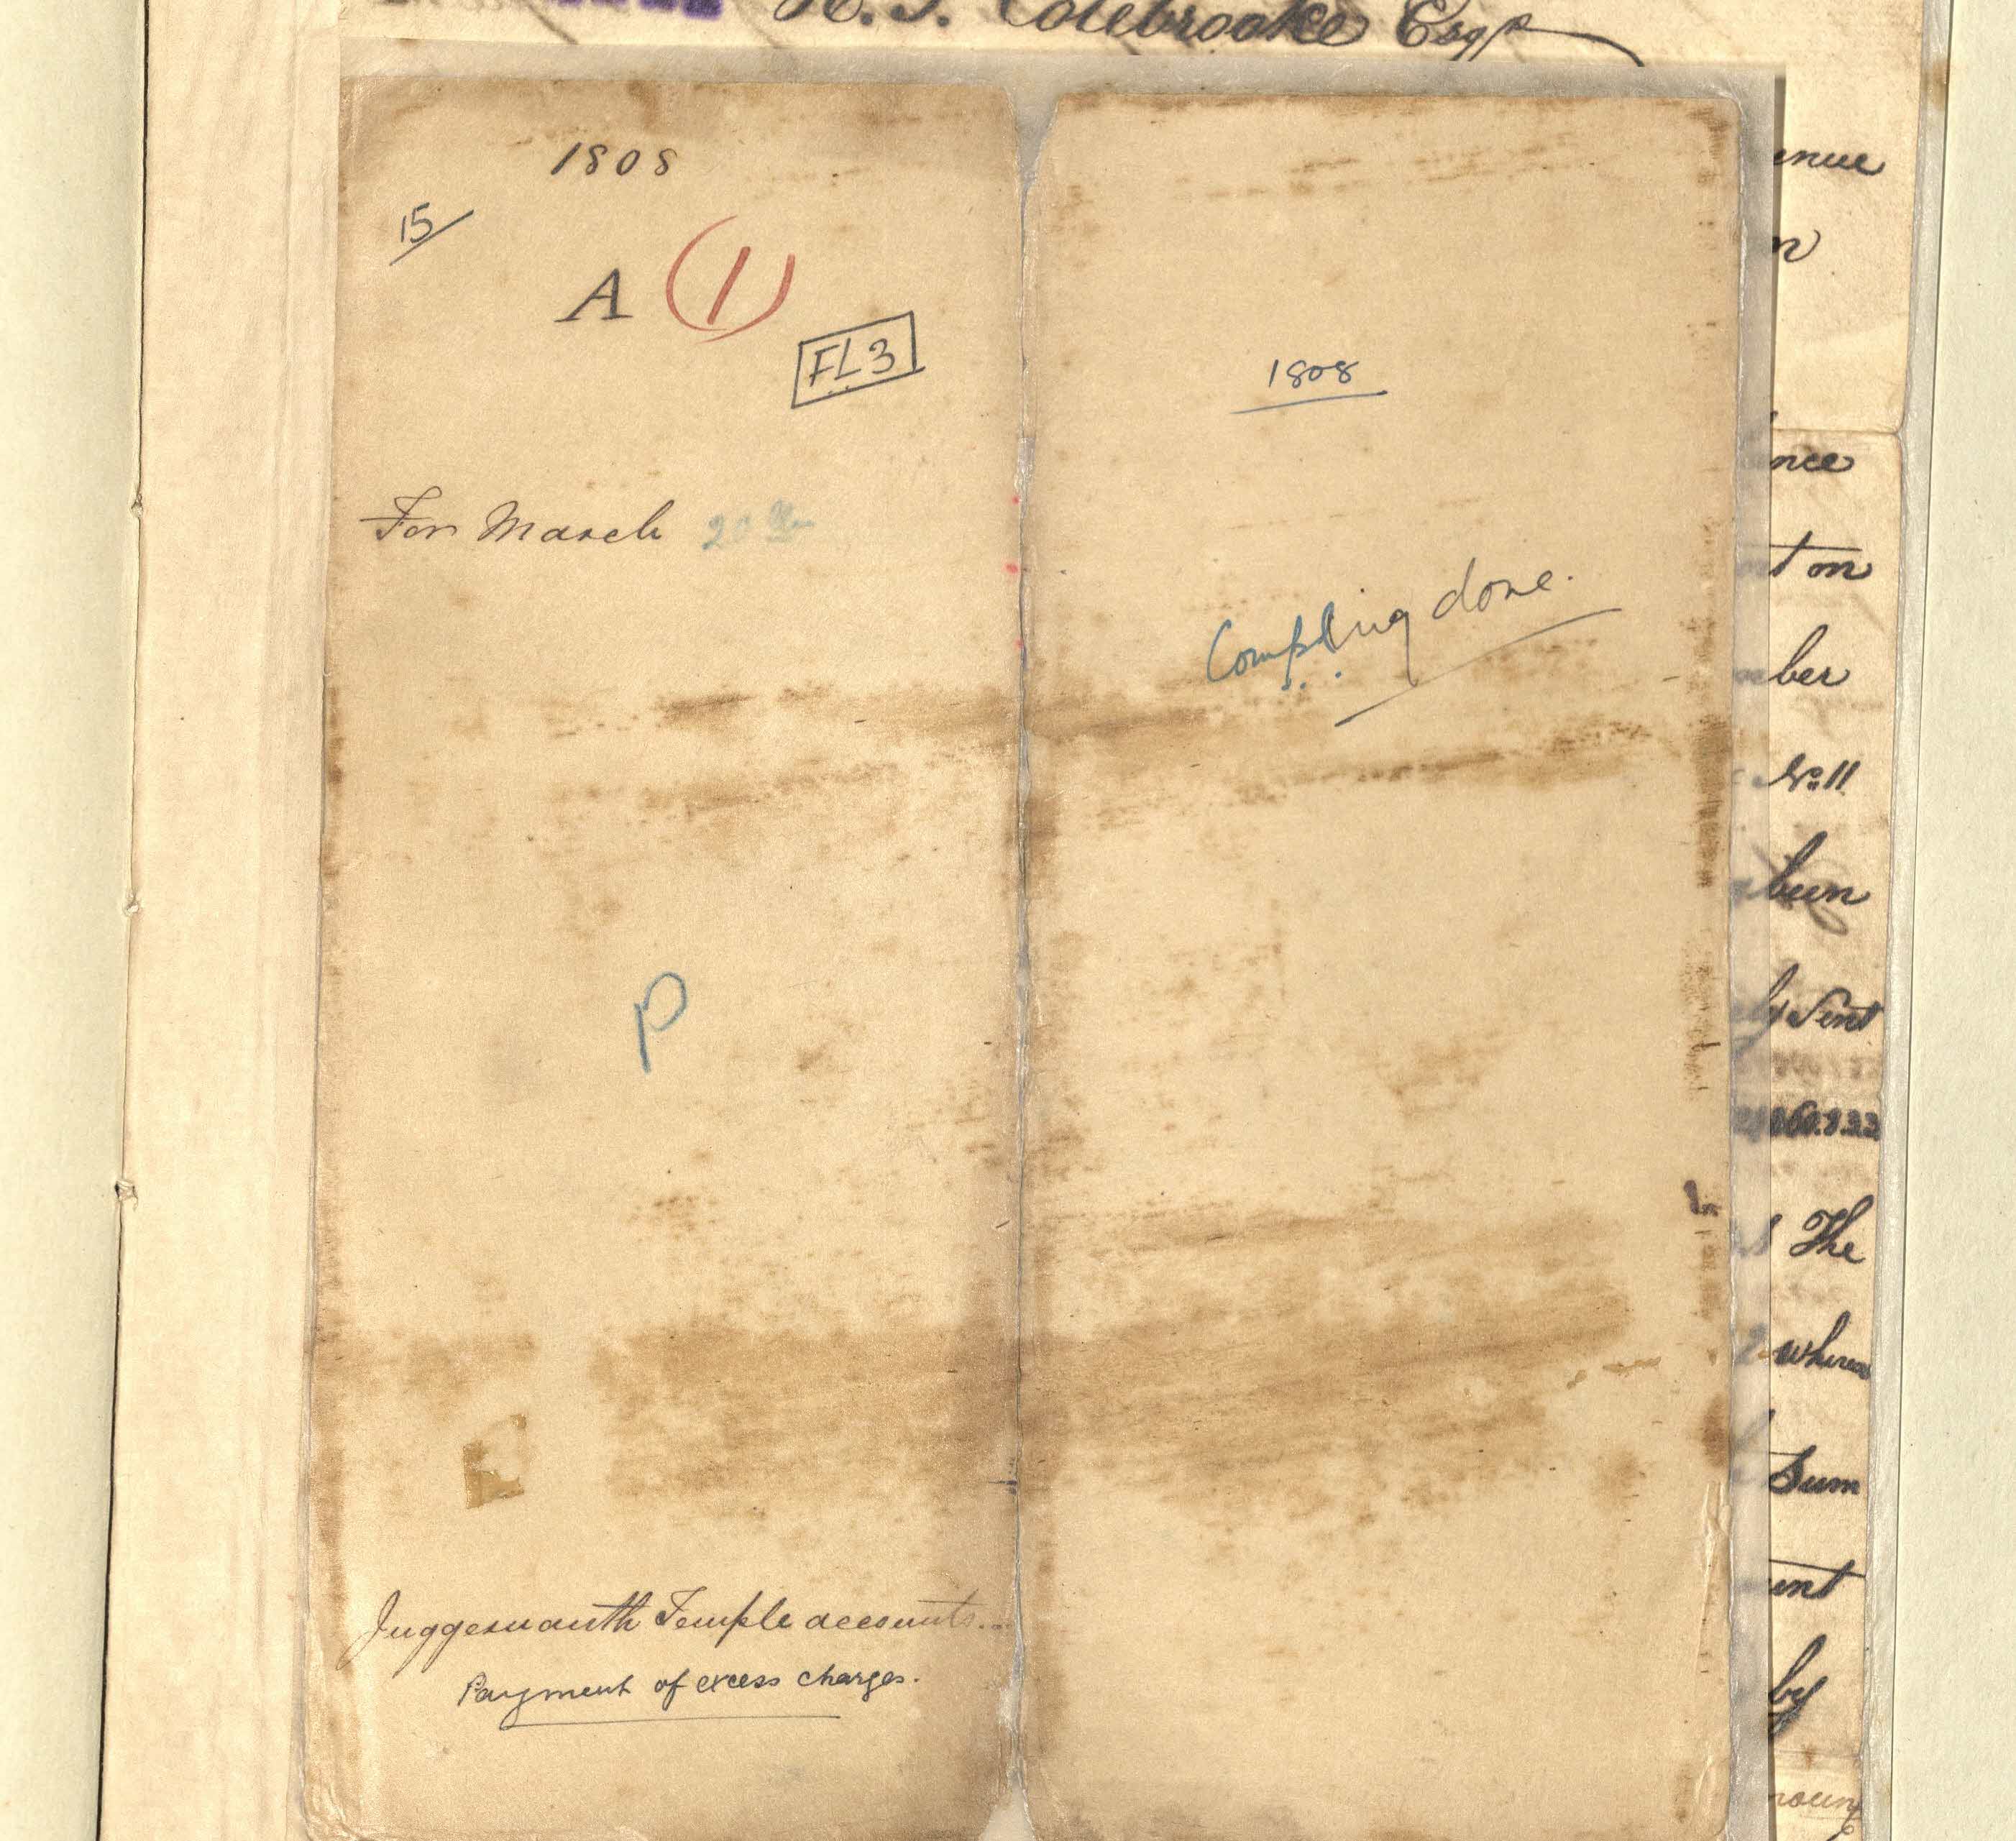 H. T. Colebrooke Esqr
1808
15/
A (1)
FL3
For March 20th
P
Juggernauth Temple accounts...
Payment of excess charges.
1808
Compling done.
enue
nce
t on
ber
No. 11
been
ly Sent
The
where
Sum
ent
by